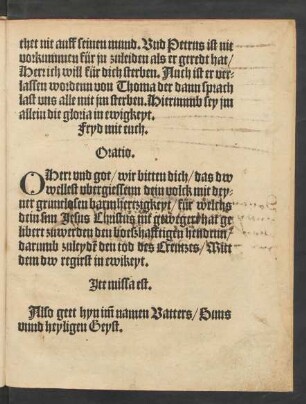 thet nit auff seinen mund. Vnd Petrus ist nit
vorkummen für jn zuleiden als er geredt hat/
Herr ich will für dich sterben. Auch ist er ver-
lassen wordenn von Thoma der dann sprach
last vns alle mit jm sterben. Hierumb sey jm
allein die gloria in ewigkeyt.
Fryd mit euch.
Oratio.
O Herr vnd got/ wir bitten dich/ das dw
wellest vbergiessenn dein volck mit dey-
ner grundlosen barmhertzigkeyt/ für welchs
dein sun Jesus Christus nit gewegert hat ge
libert zuwerden den boeßhafftigen hendenn/
darumb zuleydē den tod des Creützes/ Mitt
dem dw regirst in ewikeyt.
Ite missa est.
Also gett hyn im̄ namen Vatters/ Suns
vnnd heyligen Geyst.